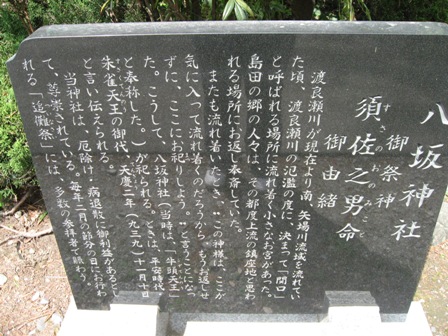 八坂神社
御祭神
須佐之男命
すさのおのみこと
御由緒
渡良瀬川が現在より南、矢場川流域を流れてい
た頃、渡良瀬川の氾濫の度に、決まって「関口」
と呼ばれる場所に流れ着く小さなお宮があった。
島田の郷の人々は、その都度上流の鎮座地と思わ
れる場所にお返し奉斎していた。
またも流れ着いたとき、「この神様は、ここが
気に入って流れ着くのだろうから、もうお返しせ
ずに、ここにお祀りしよう。」と言うことになっ
た。こうして、八坂神社(当時は、「牛頭天王」
と奉称した。)が祀られる。ときは、平安時代
朱雀天王の御代、天慶二年(九三九)十一月十日
と言い伝えられる。
当神社は、厄除け・病退散に御利益があるとし
て、尊崇されている。毎年二月の節分の日におこ行わ
れる「追儺祭」には、多数の参拝者で賑わう。